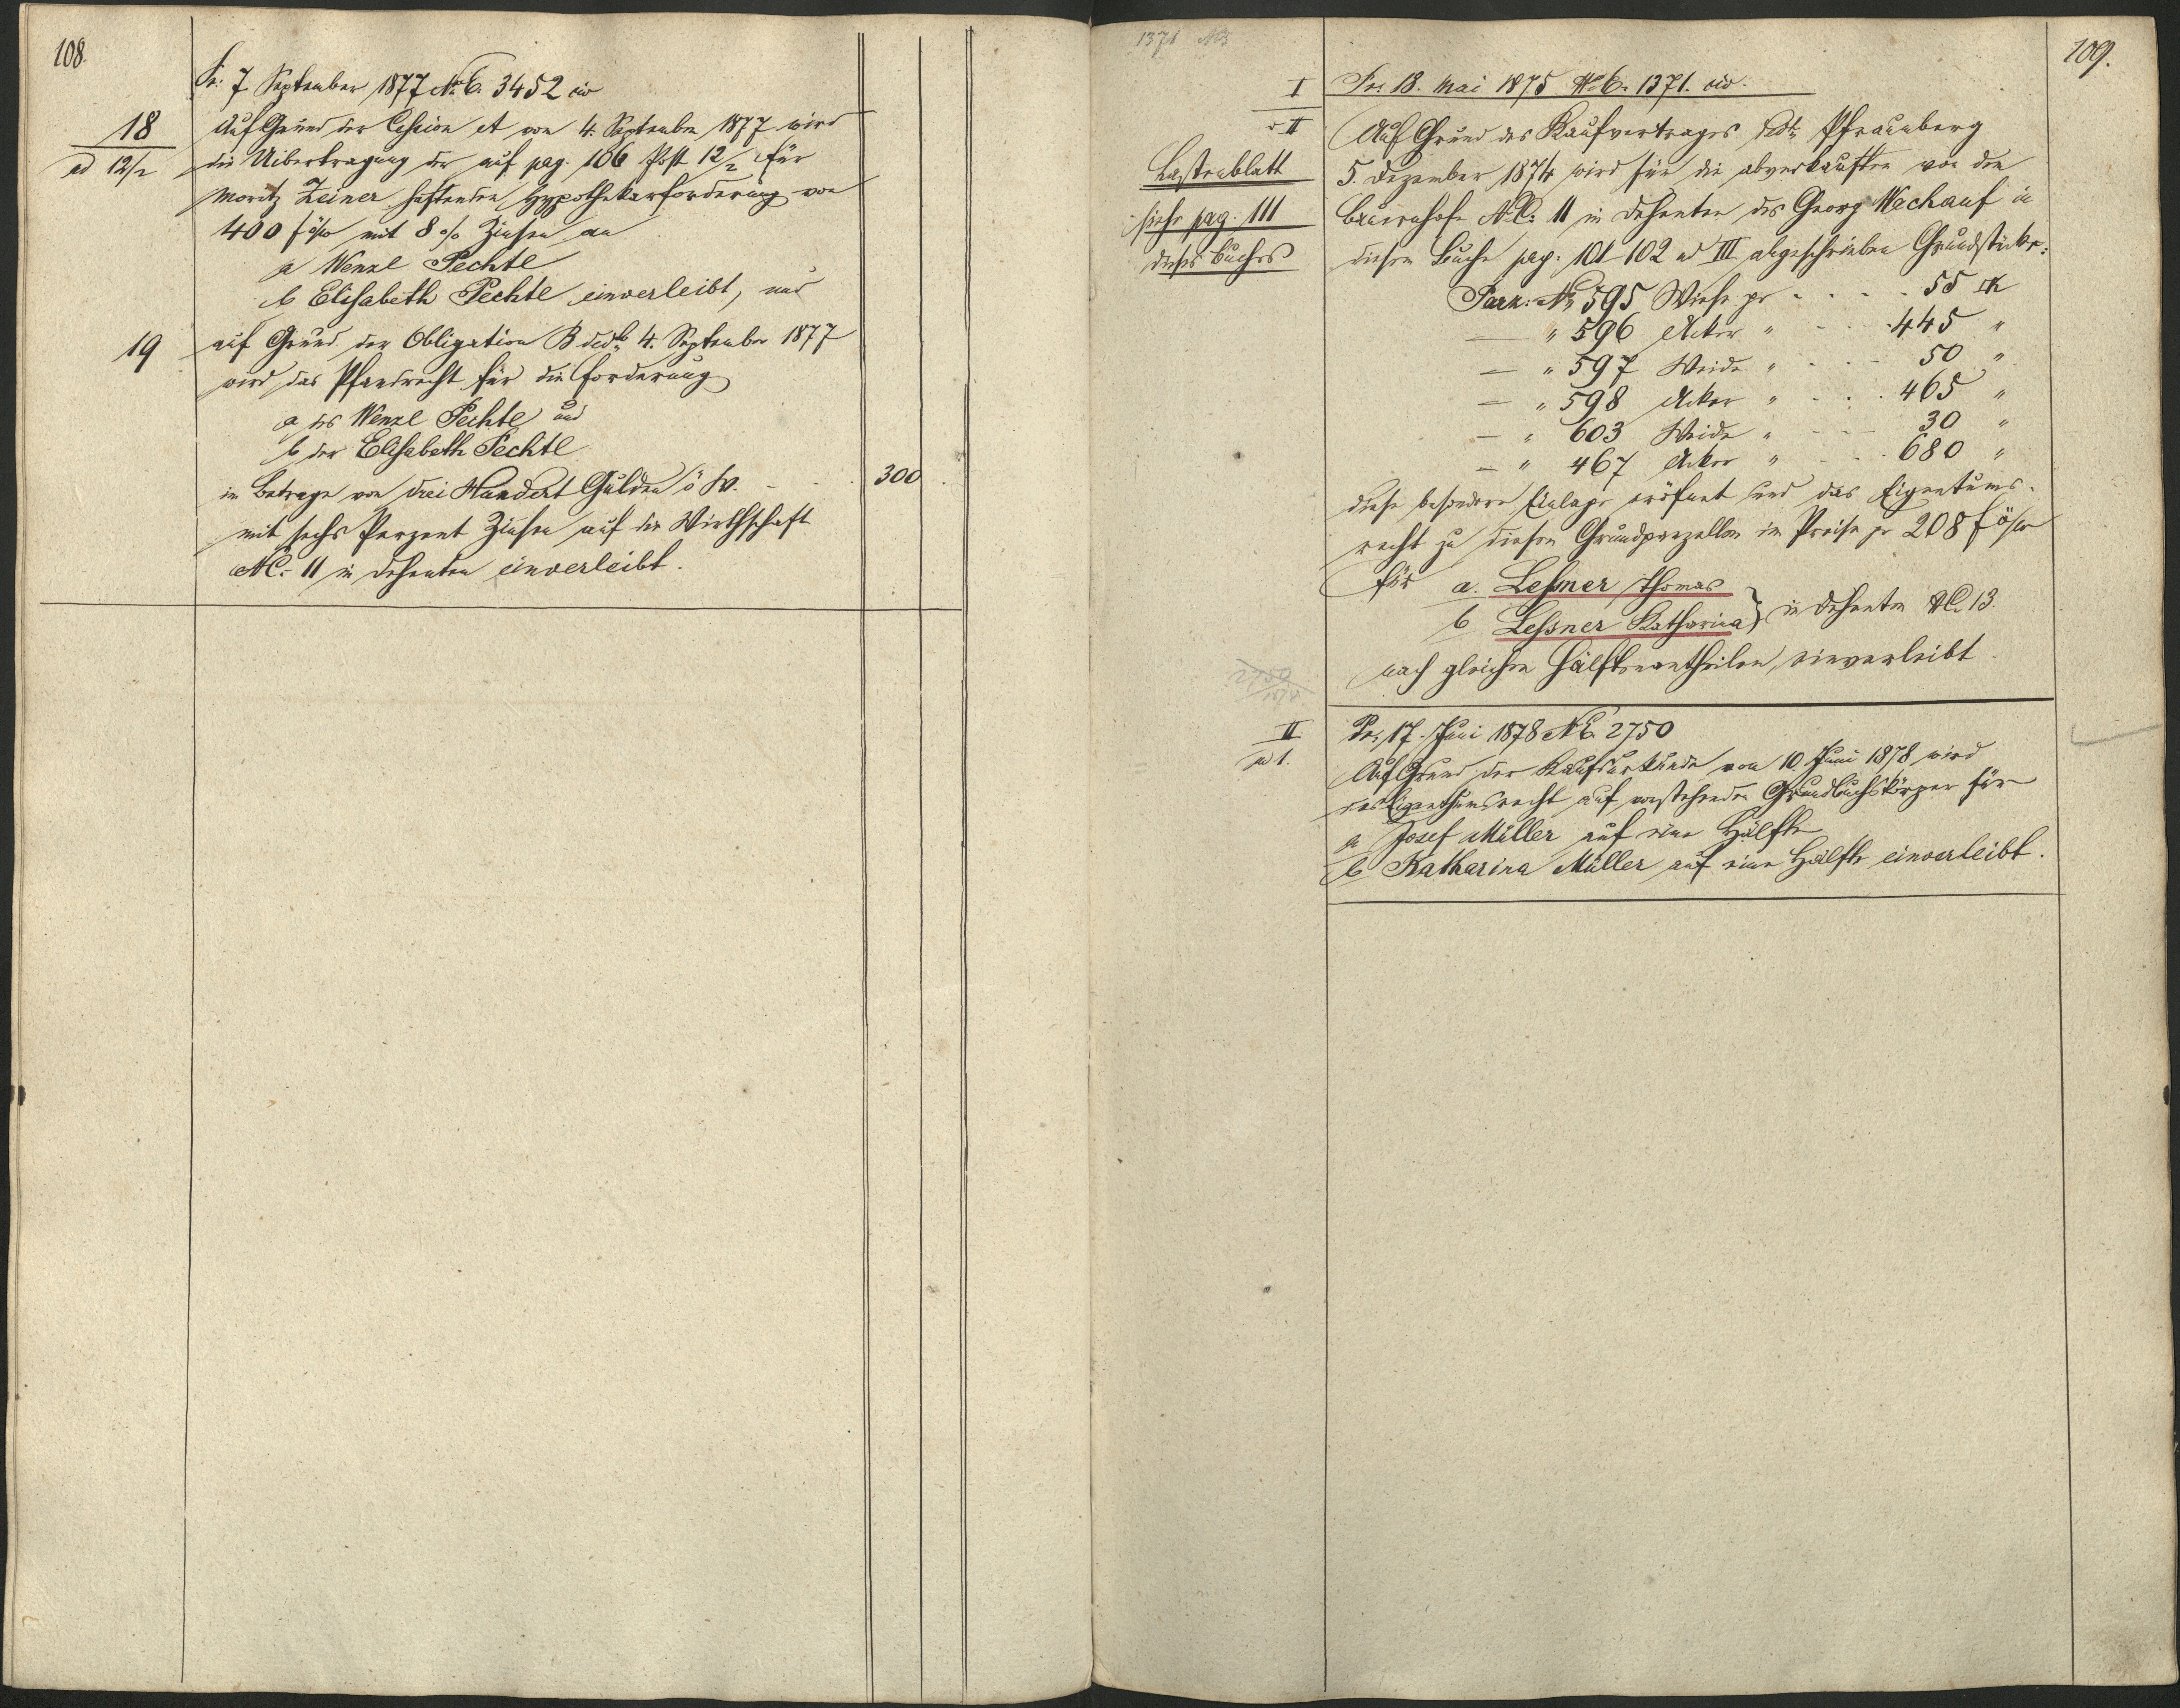 108.
Pr: 7. September 1877 N.E. 3452 civ
18
ad 12/2
Auf Grund der Cession A von 4. September 1877 wird
die Uibertragung der auf pag. 106 Post 12/2 für
Moritz Zeiner haftenden Hypothekarforderung von
400 f ö/w mit 8 % Zinsen an
a Wenzl Pechtl
b Elisabeth Pechtl einverleibt, und
19
auf Grund der Obligation B ddto 4. September 1877
wird das Pfandrecht für die Forderung
a des Wenzl Pechtl und
b der Elisabeth Pechtl
im Betrage von drei Hundert Gulden ö W. - - . 300 .
mit sechs Perzent Zinsen auf die Wirthschaft
NC: 11 in Dehenten einverleibt.
109.
1371
I
Pr. 18. Mai 1875 N.E. 1371. civ.
II
Lastenblatt
siehe pag. 111
dieses Buches
Auf Grund des Kaufvertrages ddto Pfraumberg
5. Dezember 1874 wird für die abverkauften von dem
Bauernhofe N.C: 11 in Dehenten des Georg Wachauf in
diesem Buche pag. 101-102 ad III abgeschrieben Grundstücke:
Parz: N. 595 Wiese pr - . . . 55
— " 596 Acker " - - . . 445 "
— " 597 Weide " - . - - 50 "
— " 598 Acker " - . . . 465 "
— " 603 Weide " - - — 30 "
— " 467 Acker " - . . 680 "
diese besondere Einlage eröfnet und das Eigentums-
recht zu diesen Grundparzellen im Preise pr 208 f ö/w
für a. Leßner Thomas
b Leßner Katharina } in Dehenten NC. 13.
nach gleichen Hälftenantheilen einverleibt.
2750
II
ad 1.
Pr. 17. Juni 1878 N.E. 2750
Auf Grund der Kaufsurkunde von 10. Juni 1878 wird
das Eigenthumsrecht auf vorstehenden Grundbuchskörper für
a Josef Müller auf eine Hälfte
b Katharina Müller auf eine Hälfte einverleibt.